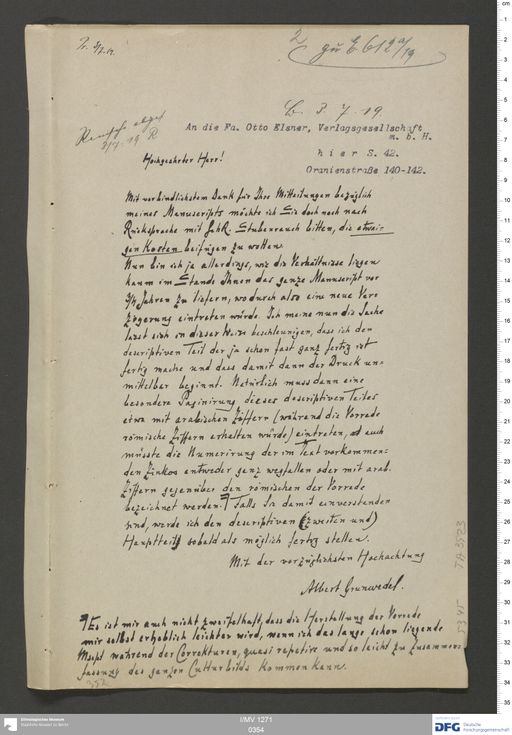 2
zu E 612 a/19
B. 3. 7. 19.
2/7. 19 R
An die Fa. Otto Elsner, Verlagsgesellschaft
m. b. H.
hier S. 42.
Oranienstraße 140-142.
Hochgeehrter Herr!
Mit verbindlichstem Dank für Ihre Mitteilungen bezüglich
meines Manuscripts möchte ich Sie doch noch nach
Rücksprache mit Stubenrauch bitten, die etwai-
gen Kosten beifügen zu wollen.
Nun bin ich ja allerdings, wie die Verhältnisse liegen
kaum im Stande Ihnen das ganze Manuscript vor
Jahren zu liefern, wodurch also eine neue Ver-
zögerung eintreten würde. Ich meine nun die Sache
lässt sich in dieser Weise beschleunigen, dass ich den
descriptiven Teil der ja schon fast ganz fertig ist
fertig mache und dass damit dann der Druck un-
mittelbar beginnt. Natürlich muss dann eine
besondere Paginirung dieses descriptiven Teiles
etwa mit arabischen Ziffern (während die Vorrede
römische Ziffern erhalten würde) eintreten, auch
müsste die Numerirung der im Text vorkommen=
den Zinkos entweder ganz wegfallen oder mit arab.
Ziffern gegenüber den römischen der Vorrede
bezeichnet werden. Falls Sie damit einverstanden
sind, werde ich den descriptiven (zweiten und)
Hauptteil sobald als möglich fertig stellen.
Mit der vorzüglichsten Hochachtung
Albert Grünwedel.
Es ist mir auch nicht zweifelhaft, dass die Herstellung der Vorrede
mir selbst erheblich leichter wird, wenn ich das lange schon liegende
Mscpt während der Correkturen, quasi repetire und so leicht zu zusammen-
fassung des ganzen Culturbilds kommen kann.
352
TA 3523
Ethnologisches Museum
Staatliche Museen zu Berlin
I/MV 1271
0354
DFG Deutsche
Forschungsgemeinschaft
cm
1
2
3
4
5
6
7
8
9
10
11
12
13
14
15
16
17
18
19
20
21
22
23
24
25
26
27
28
29
30
31
32
33
34
35